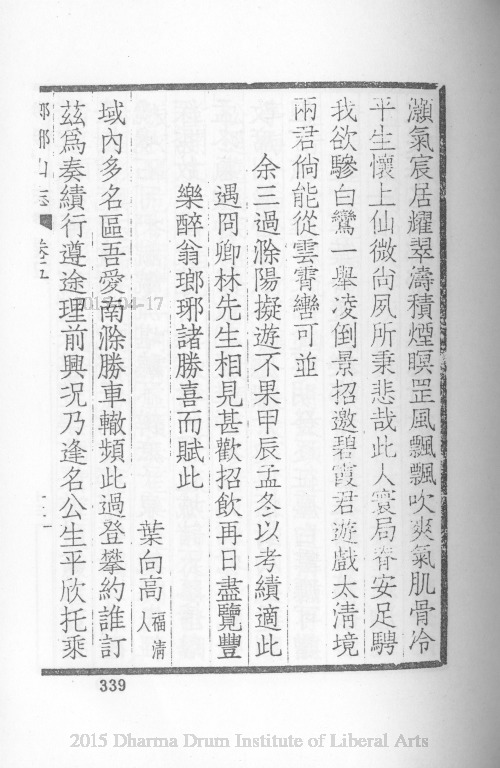 灝氣宸居耀翠濤積煙暝罡風飄飄吹爽氣肌骨冷
平生懷上仙微尚夙所秉悲哉此人寰局脊安足騁
我欲驂白鸞一舉凌倒景招邀碧霞君遊戲太清境
兩君倘能從雲霄轡可並
余三過滁陽擬遊不果甲辰孟冬以考績適此
遇冏卿林先生相見甚歡招飲再日盡覽豐
樂醉翁瑯琊諸勝喜而賦此
葉向高 福清人
域內多名區吾愛南滁勝車轍頻此過登攀約誰訂
茲爲奏績行遵途理前興況乃逢名公生平欣托乘
瑯琊山志 卷五
339
2017-04-17
2015 Dharma Drum Institute of Liberal Arts